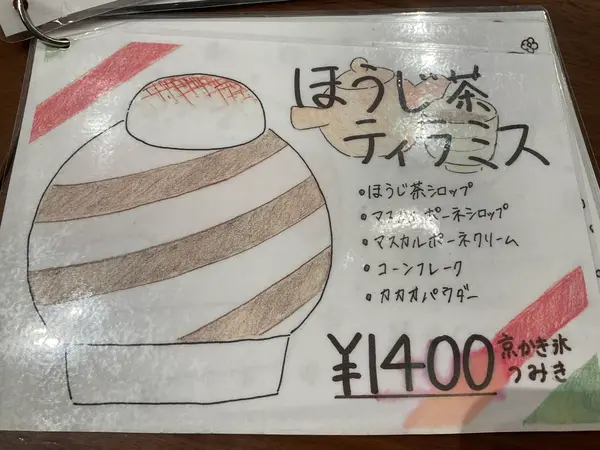 ほうじ茶
ティラミス
・ほうじ茶シロップ
・マスカルポーネシロップ
・マスカルポーネクリーム
・コーンフレーク
・カカオパウダー
¥1400
京かき氷
つみき